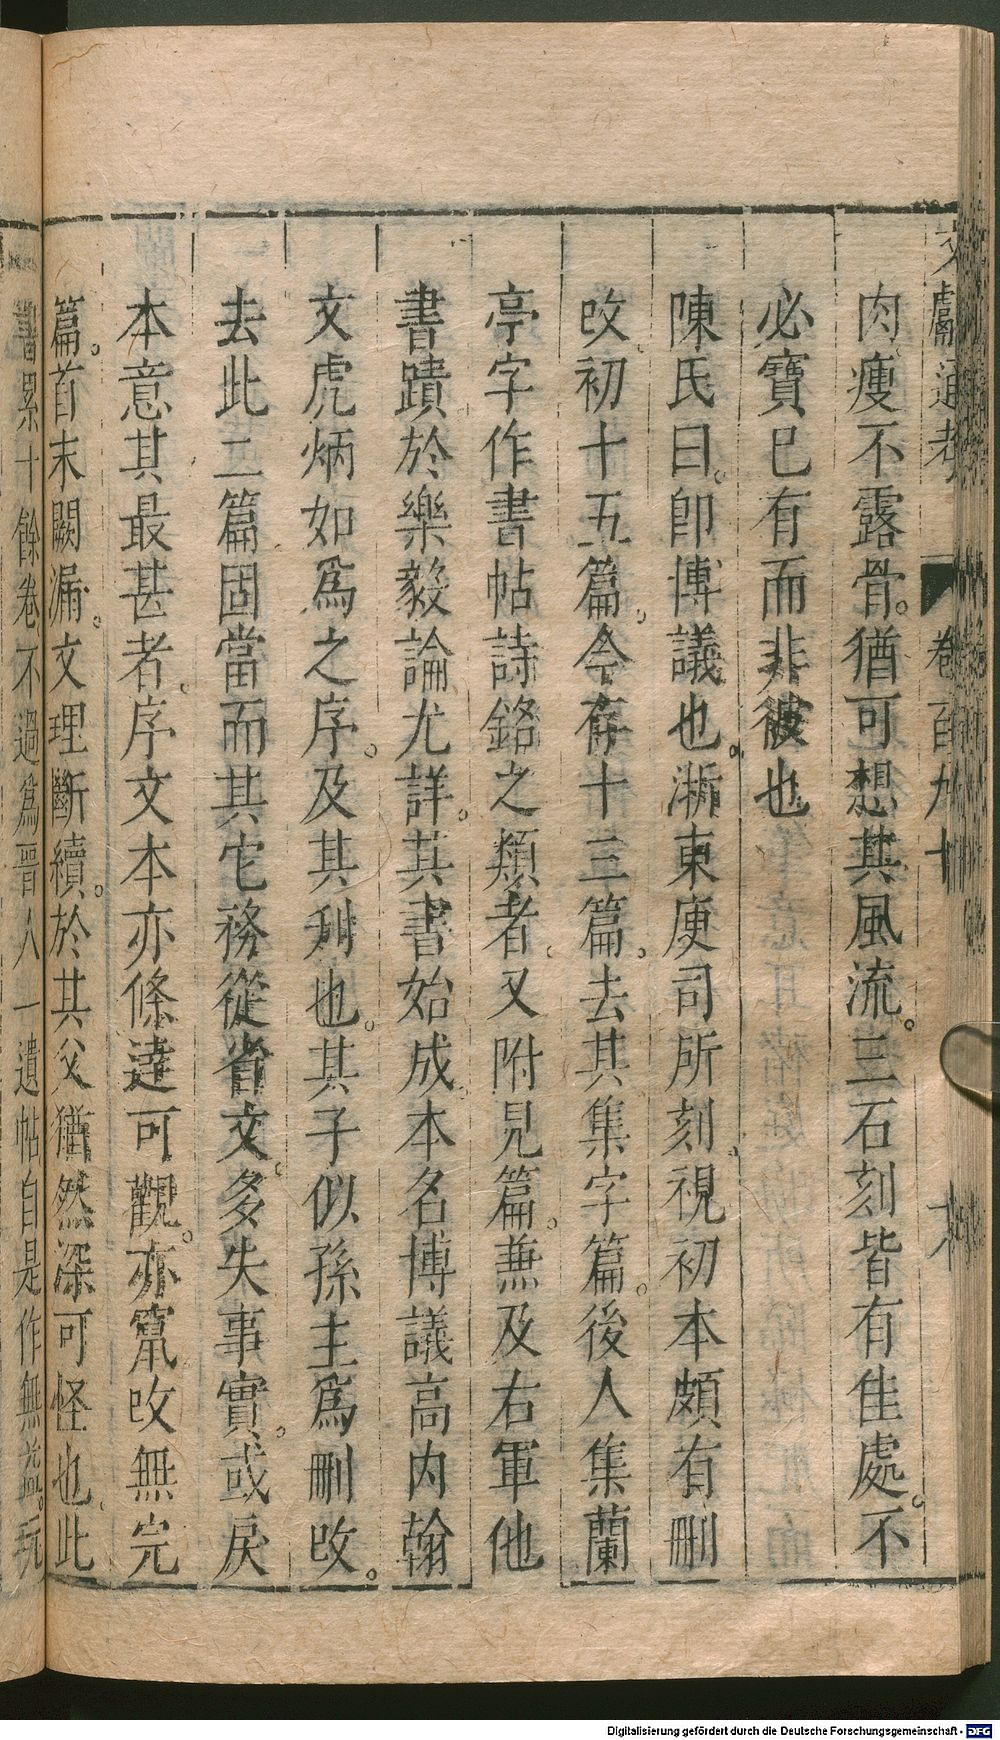 文獻通考 卷百九十 六
肉瘦不露骨。猶可想其風流。三石刻皆有佳處。不
必寶已有而非彼也
陳氏曰。卽博議也。浙東庾司所刻。視初本頗有刪
改。初十五篇。今存十三篇。去其集字篇。後人集蘭
亭字作書帖詩銘之類者。又附見篇。兼及右軍他
書蹟。於樂毅論尤詳。其書始成。本名博議。高內翰
文虎炳如爲之序。及其刊也。其子似孫主爲刪改。
去此二篇固當。而其它務從省文。多失事實。或戾
本意。其最甚者。序文本亦條達可觀。亦竄改無完
篇。首末闕漏。文理斷續。於其父猶然。深可怪也。此
書累十餘卷。不過爲晉人一遺帖自是作無益。玩
Digitalisierung gefördert durch die Deutsche Forschungsgemeinschaft - DFG